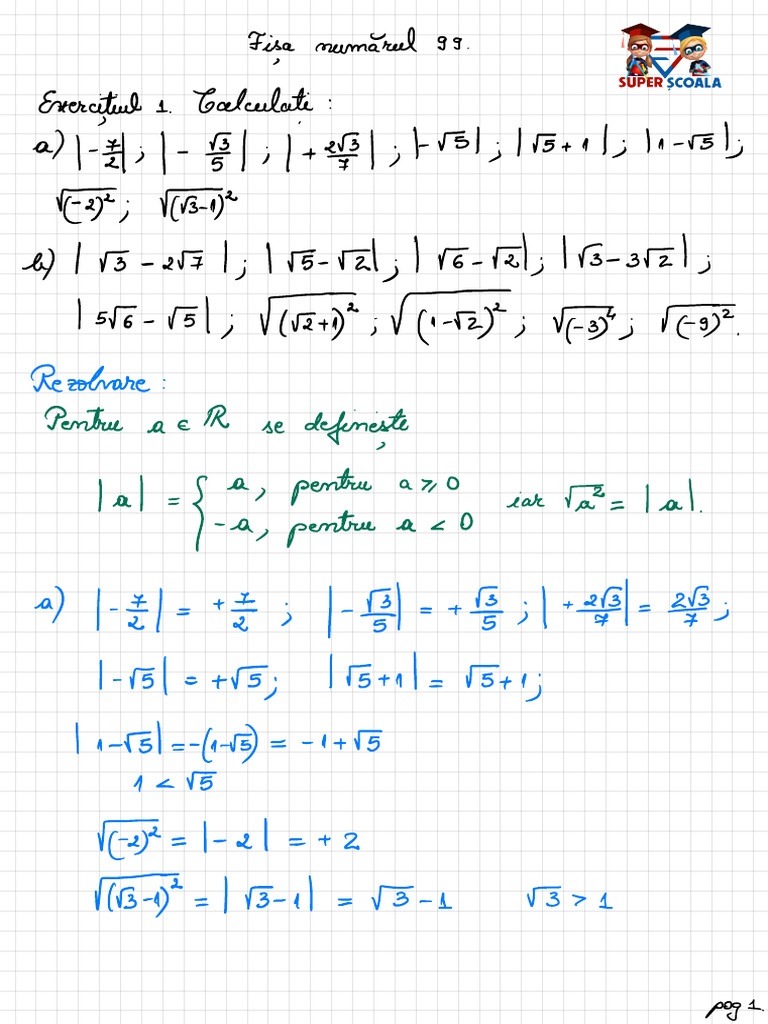 Fișa numărul 99.
SUPER ȘCOALA
Exercițiul 1. Calculati :
a) |-7/2| ; |-√3/5| ; |+2√3/7| ; |-√5| ; |√5+1| ; |1-√5| ;
√(-2)² ; √(√3-1)²
b) |√3-2√7| ; |√5-√2| ; |√6-√2| ; |√3-3√2| ;
|5√6-√5| ; √(√2+1)² ; √(1-√2)² ; √(-3)⁴ ; √(-9)².
Rezolvare :
Pentru a ∈ ℝ se definește
|a| = { a, pentru a ≥ 0
-a, pentru a < 0 iar √a² = |a|.
a) |-7/2| = +7/2 ; |-√3/5| = +√3/5 ; |+2√3/7| = 2√3/7 ;
|-√5| = +√5 ; |√5+1| = √5+1 ;
|1-√5| = -(1-√5) = -1+√5
1 < √5
√(-2)² = |-2| = +2
√(√3-1)² = |√3-1| = √3-1 √3 > 1
pag 1.